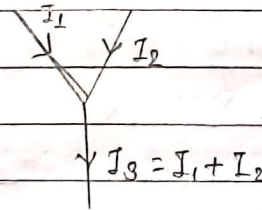 I₁
I₂
I₃ = I₁ + I₂